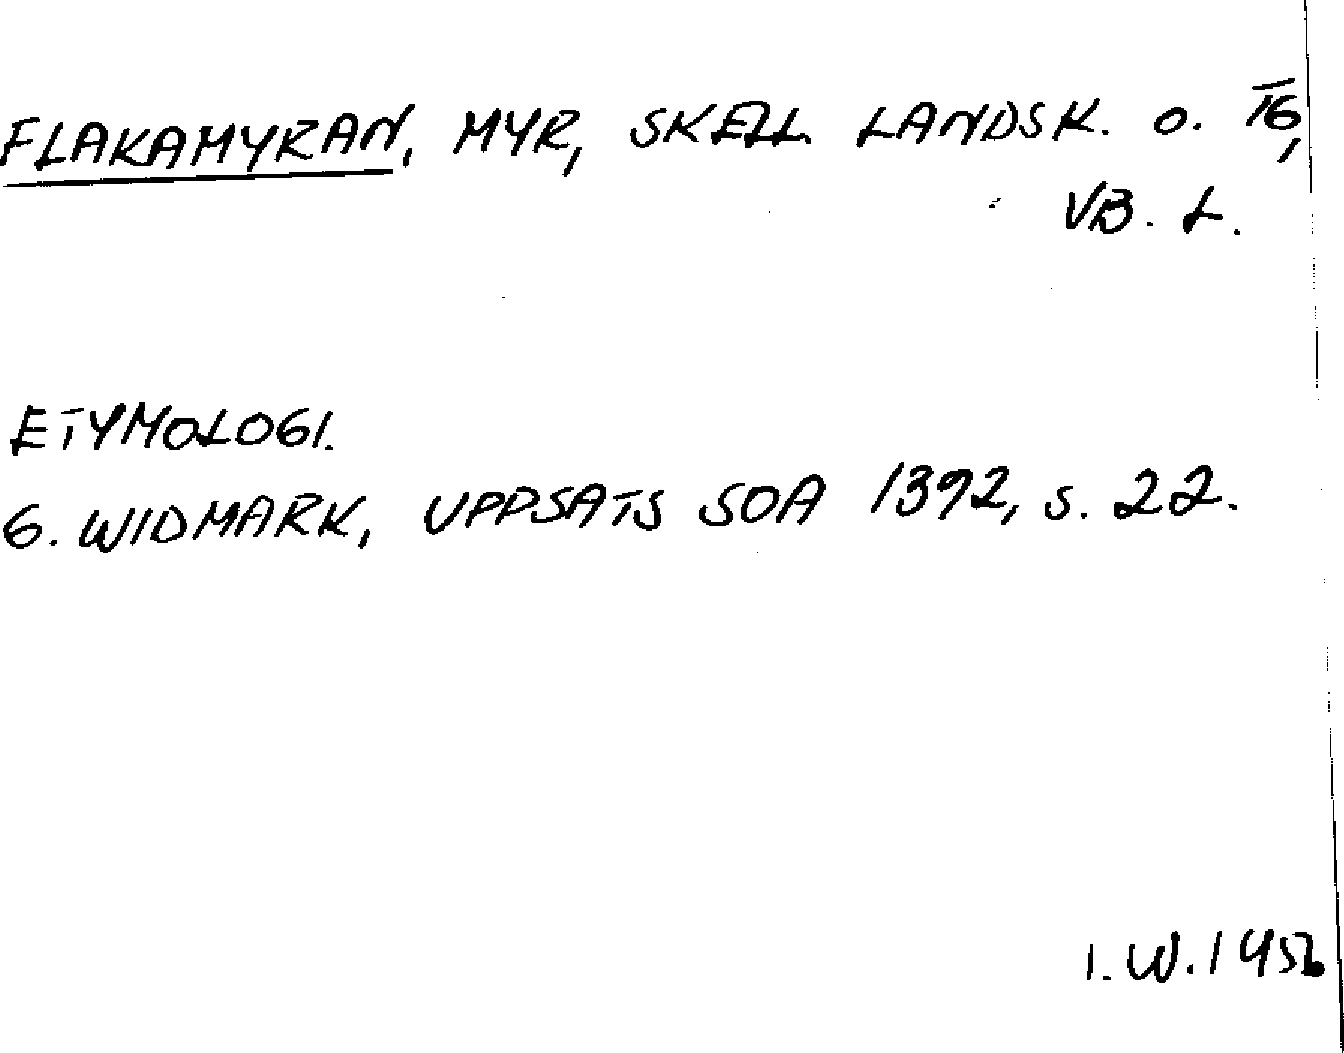 FLAKAMYRAN, MYR, SKELL. LANDSK. O. TG,
VB. L.
ETYMOLOGI.
G. WIDMARK, UPPSATS SOA 1392, S. 22.
I. W. 1956